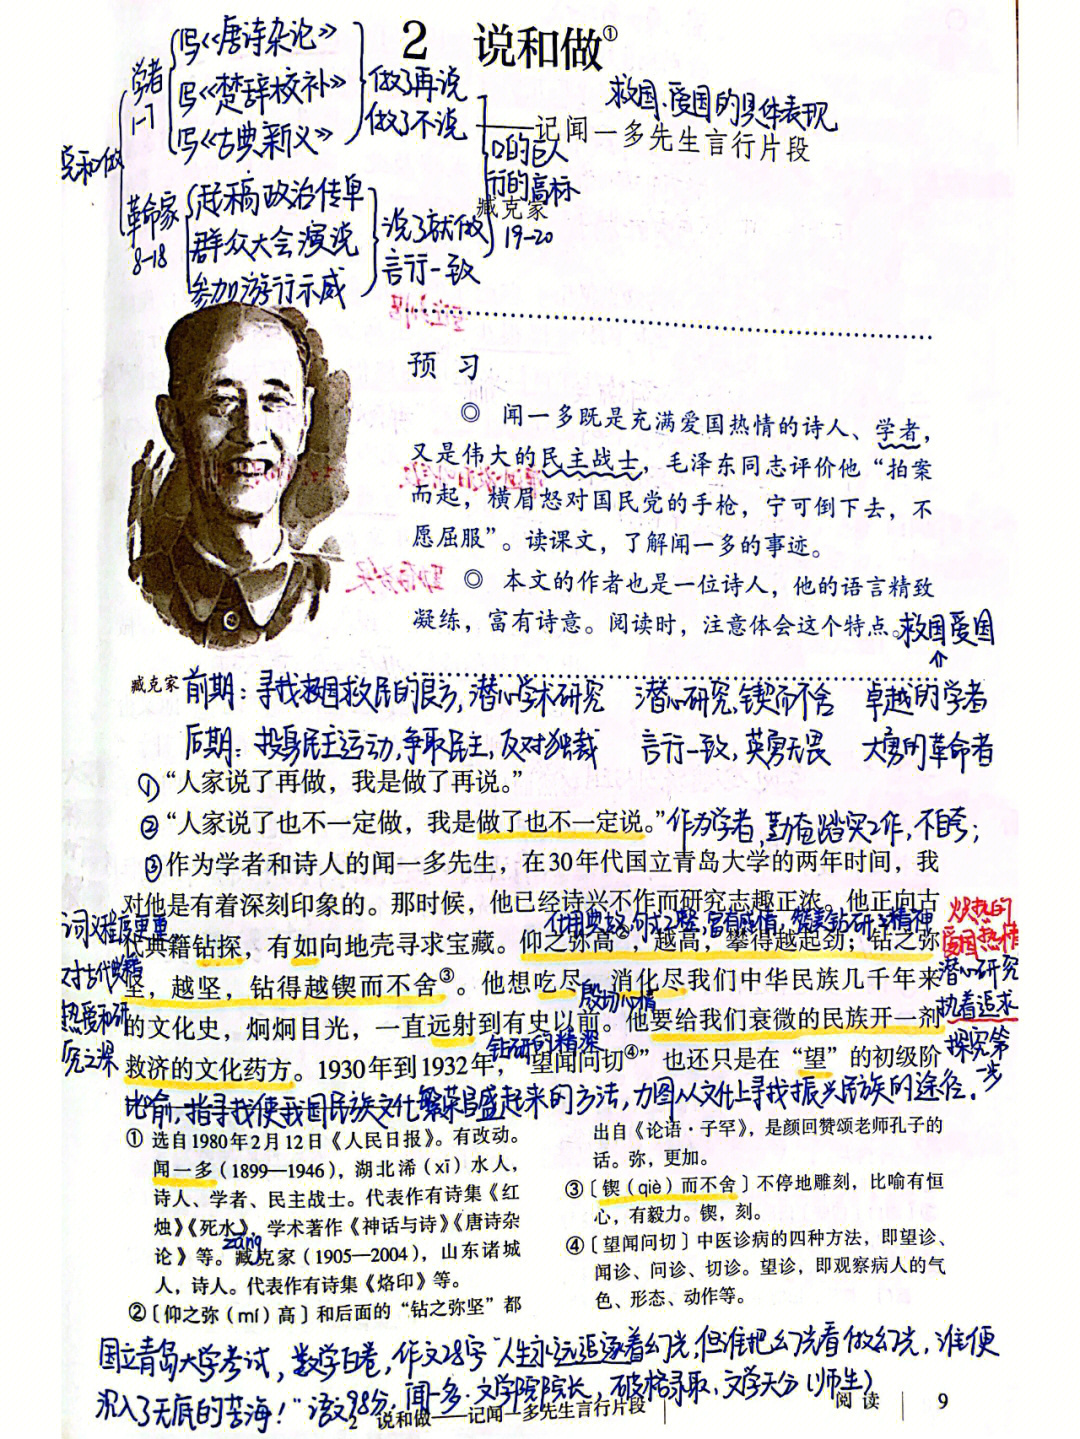 说和做
学者
1-7
写《唐诗杂论》
写《楚辞校补》
写《古典新义》
做了再说
做了不说
革命家
8-18
起稿政治传单
群众大会演说
参加游行示威
说了就做
言行一致
口的巨人
行的高标
19-20
2 说和做①
救国、爱国的具体表现
——记闻一多先生言行片段
臧克家
预 习
◎ 闻一多既是充满爱国热情的诗人、学者，
又是伟大的民主战士，毛泽东同志评价他“拍案
而起，横眉怒对国民党的手枪，宁可倒下去，不
愿屈服”。读课文，了解闻一多的事迹。
◎ 本文的作者也是一位诗人，他的语言精致
凝练，富有诗意。阅读时，注意体会这个特点。
救国爱国
臧克家
前期：寻找救国救民的良方，潜心学术研究 潜心研究，锲而不舍 卓越的学者
后期：投身民主运动，争取民主，反对独裁 言行一致，英勇无畏 大勇的革命者
①“人家说了再做，我是做了再说。”
②“人家说了也不一定做，我是做了也不一定说。”作为学者，勤奋踏实工作，不自夸；
③作为学者和诗人的闻一多先生，在30年代国立青岛大学的两年时间，我
对他是有着深刻印象的。那时候，他已经诗兴不作而研究志趣正浓。他正向古
代典籍钻探，有如向地壳寻求宝藏。仰之弥高②，越高，攀得越起劲；钻之弥
坚，越坚，钻得越锲而不舍③。他想吃尽、消化尽我们中华民族几千年来
的文化史，炯炯目光，一直远射到有史以前。他要给我们衰微的民族开一剂
救济的文化药方。1930年到1932年，“望闻问切④”也还只是在“望”的初级阶
词义程度更重
对古代典籍
热爱和研
究之深
殷切心情
钻研的精深
炽热的
爱国热情
潜心研究
执着追求
探究第
一步
比喻，指寻找使我国民族文化繁荣昌盛起来的方法，力图从文化上寻找振兴民族的途径。
① 选自1980年2月12日《人民日报》。有改动。
闻一多（1899—1946），湖北浠（xī）水人，
诗人、学者、民主战士。代表作有诗集《红
烛》《死水》，学术著作《神话与诗》《唐诗杂
zāng
论》等。臧克家（1905—2004），山东诸城
人，诗人。代表作有诗集《烙印》等。
②〔仰之弥（mí）高〕和后面的“钻之弥坚”都
出自《论语·子罕》，是颜回赞颂老师孔子的
话。弥，更加。
③〔锲（qiè）而不舍〕不停地雕刻，比喻有恒
心，有毅力。锲，刻。
④〔望闻问切〕中医诊病的四种方法，即望诊、
闻诊、问诊、切诊。望诊，即观察病人的气
色、形态、动作等。
国立青岛大学考试，数学白卷，作文28字“人生永远追逐着幻光，但谁把幻光看做幻光，谁便
沉入了无底的苦海！”语文98分，闻一多·文学院院长，破格录取，文学天分（师生）
2 说和做——记闻一多先生言行片段
阅读 9